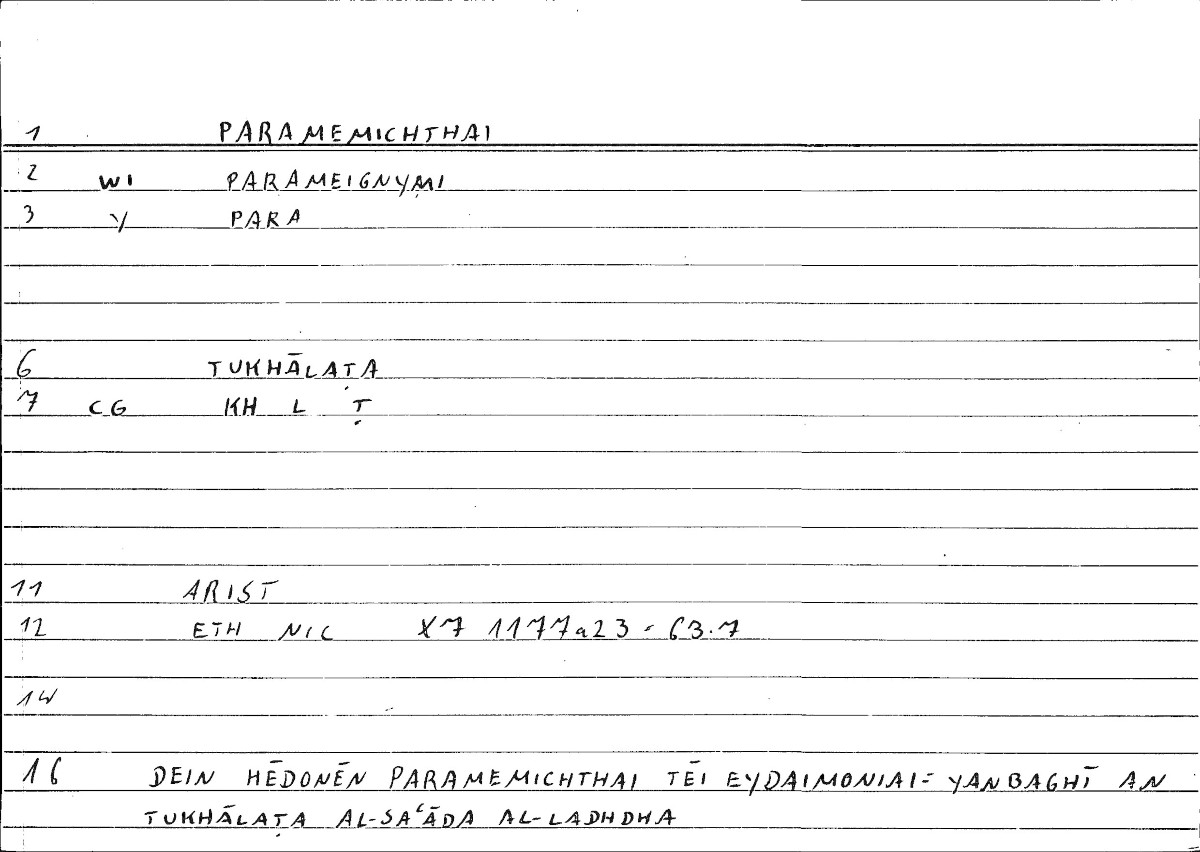 1 PARAMEMICHTHAI
2 WI PARAMEIGNYMI
3 Y PARA
6 TUKHĀLAṬA
7 CG KH L Ṭ
11 ARIST
12 ETH NIC X7 1177a23 = 63.7
14
16 DEIN HĒDONĒN PARAMEMICHTHAI TĒI EYDAIMONIAI = YANBAGHĪ AN
TUKHĀLAṬA AL-SAʿĀDA AL-LADHDHA